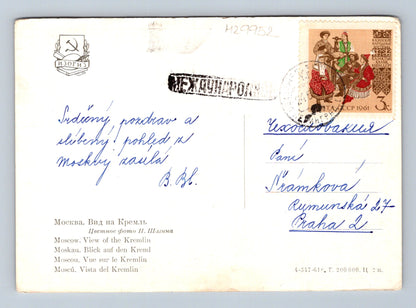 M29952
ИЗОГИЗ
МЕЖДУНАРОДНОЕ
СССР 1961
3 к
Srdečný pozdrav a
slíbený pohled z
Moskvy zasílá
B. Bl.
Чехословакия
Paní
Nrámková
Rumunská 27
Praha 2
Москва. Вид на Кремль.
Цветное фото Н. Шагина
Moscow. View of the Kremlin
Moskau. Blick auf den Kreml
Moscou. Vue sur le Kremlin
Moscú. Vista del Kremlin